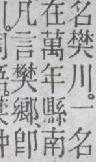 名樊川。一名
在萬年縣南
凡言樊鄉卽